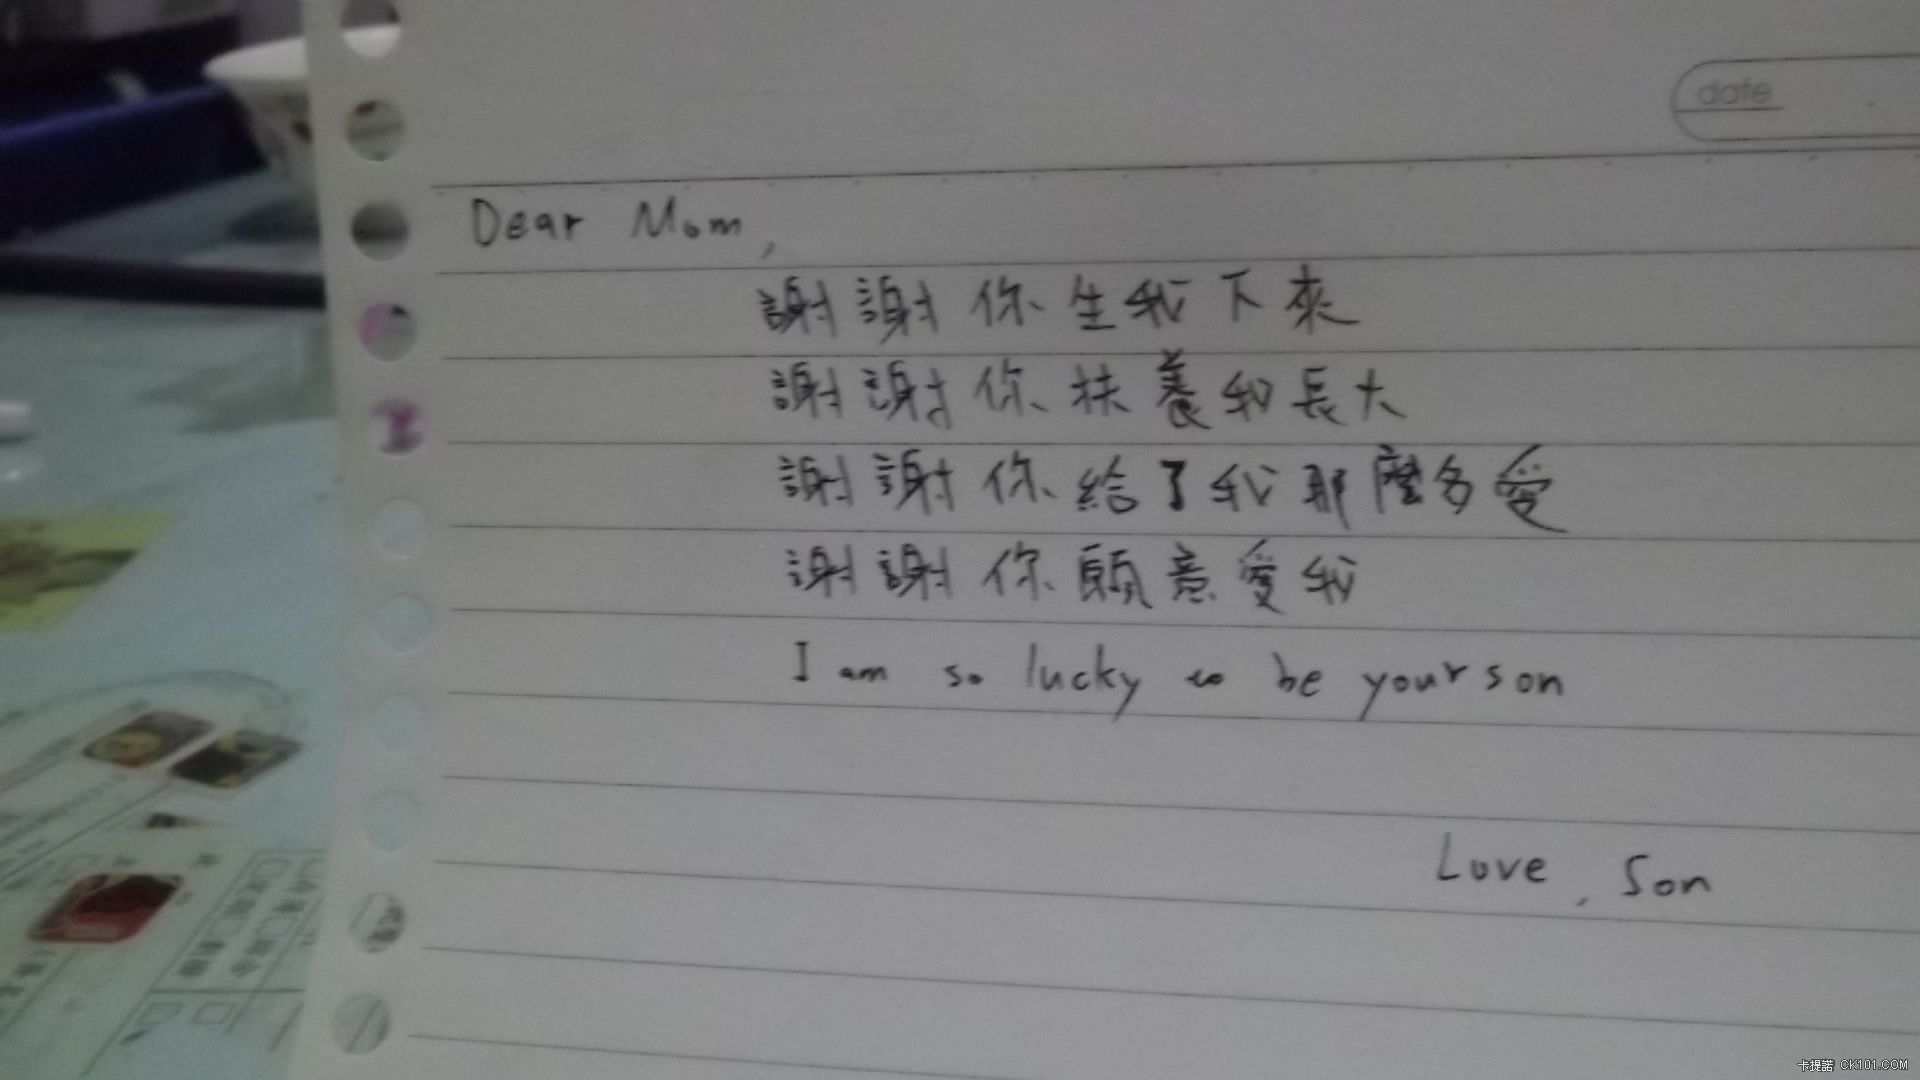 date
Dear Mom,
謝謝你生我下來
謝謝你扶養我長大
謝謝你給了我那麼多愛
謝謝你願意愛我
I am so lucky to be your son
Love, Son
卡提諾 CK101.COM